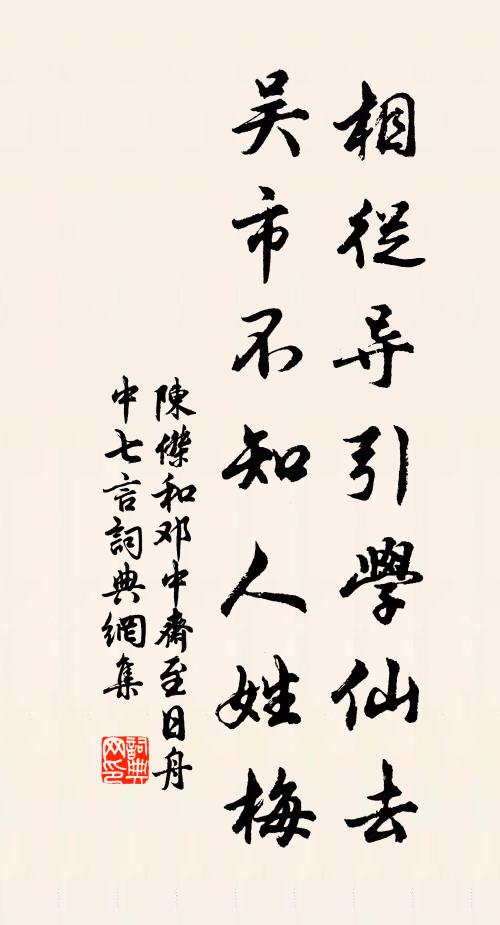 相從导引學仙去
吴市不知人姓梅
陳傑和邓中齋至日舟
中七言詞典網集
詞典
网印